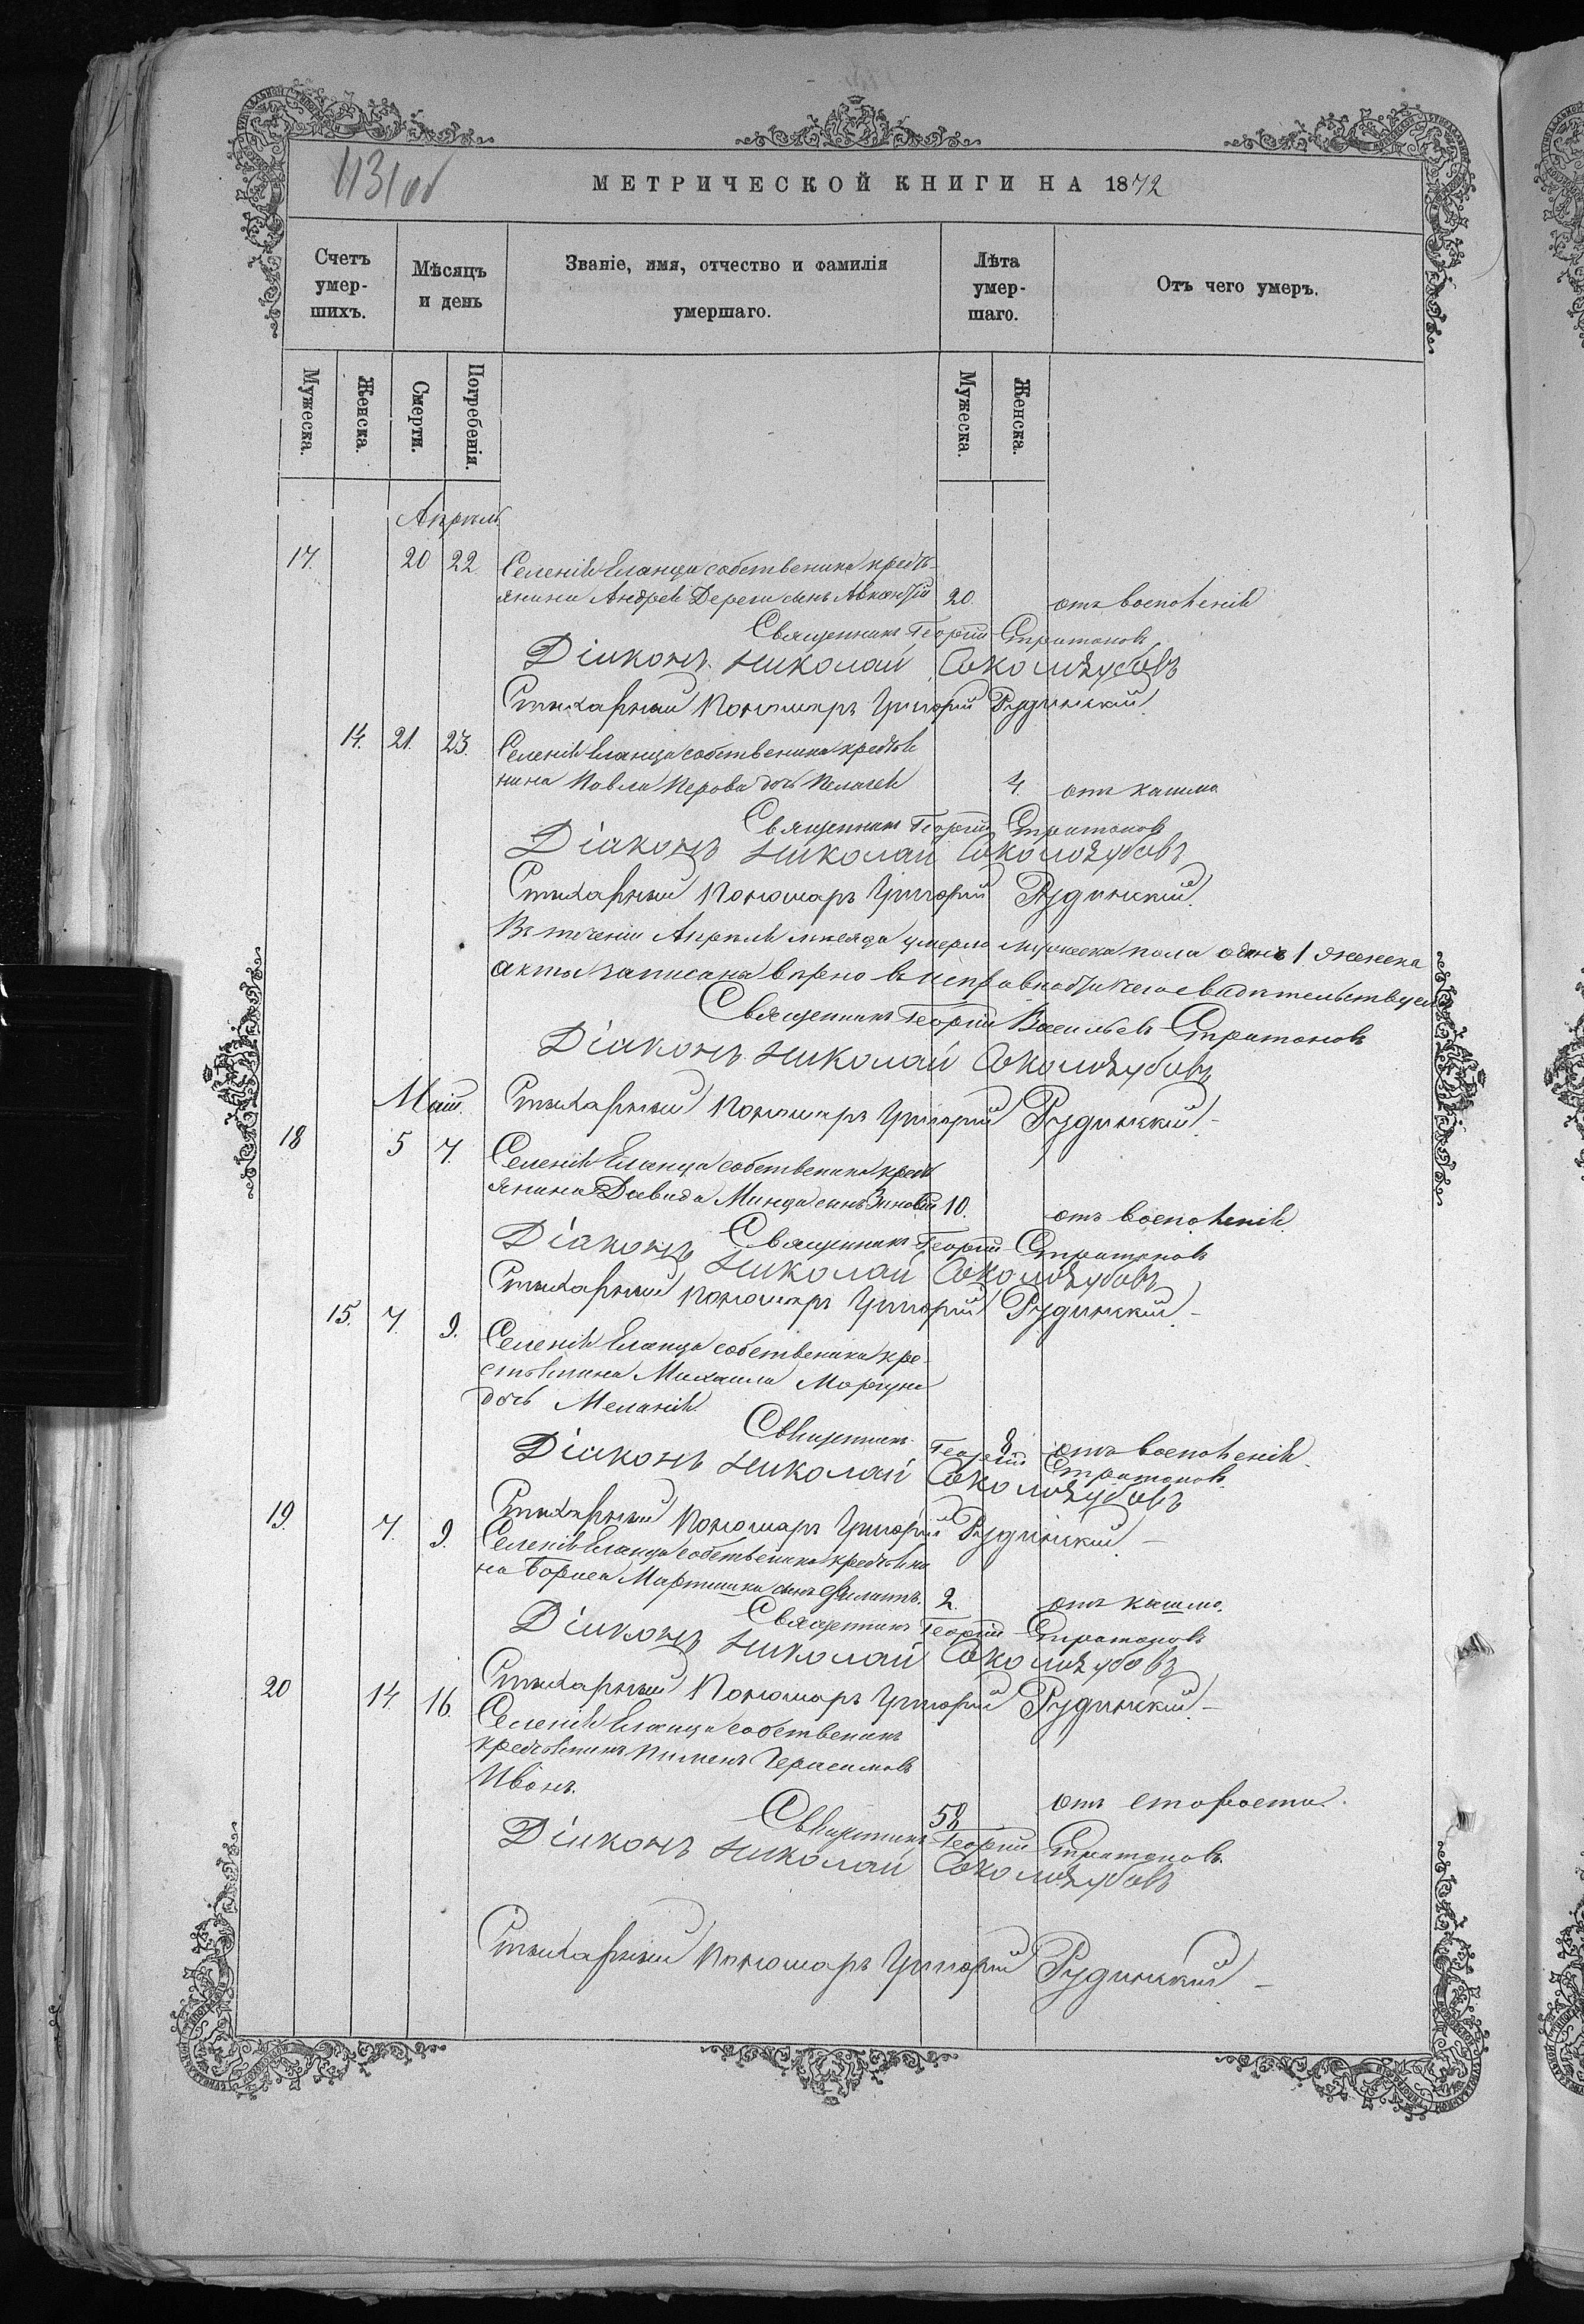 113об
МЕТРИЧЕСКОЙ КНИГИ НА 1872
Счетъ умер-шихъ.
Мѣсяцъ и день
Званіе, имя, отчество и фамилія умершаго.
Лѣта умер-шаго.
Отъ чего умеръ.
Мужеска.
Женска.
Смерти.
Погребенія.
Мужеска.
Женска.
Апрѣль
17. 20 22 Селенія Еланца собственика крестъ-
янина Андрея Дереги сынъ 20. отъ воспаленія
Священникъ Георгій Стратоновъ
Діаконъ Николай
Стихарный Пономаръ Григорій Рудинскій.
14. 21. 23. Селенія Еланца собственика крестья
нина Павла Перова дочь Пелагея 4. отъ кашля
Священникъ Георгій Стратоновъ
Діаконъ Николай
Стихарный Пономаръ Григорій Рудинскій.
Въ теченіи Апрѣля мѣсяца умерло мужеска пола одинъ 1 женска
акты записаны вѣрно въ чемъ свидѣтельствуемъ
Священникъ Георгій Васильевъ Стратоновъ
Діаконъ Николай
Маій. Стихарный Пономаръ Григорій Рудинскій.
18 5 7. Селенія Еланца собственика крест
янина Давида Минца сынъ Зиновій 10. отъ воспаленія
Священникъ Георгій Стратоновъ
Діаконъ Николай
Стихарный Пономаръ Григорій Рудинскій.
15. 7. 9. Селенія Еланца собственика кре-
стьянина Михаила Моргуна
дочь Меланія. 8 отъ воспаленія.
Священникъ Георгій Стратоновъ
Діаконъ Николай
Стихарный Пономаръ Григорій Рудинскій.
19. 7. 9. Селенія Еланца собственика крестьяни
на Бориса Мартишка сынъ Филиппъ. 2. отъ кашля.
Священникъ Георгій Стратоновъ
Діаконъ Николай
Стихарный Пономаръ Григорій Рудинскій.
20 14. 16. Селенія Еланца собственикъ
крестьянинъ Пименъ Герасимовъ
Ивонъ. 58 отъ старости.
Священникъ Георгій Стратоновъ.
Діаконъ Николай
Стихарный Пономаръ Григорій Рудинскій